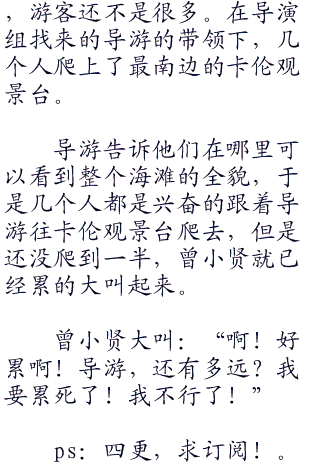 ，游客还不是很多。在导演
组找来的导游的带领下，几
个人爬上了最南边的卡伦观
景台。
导游告诉他们在哪里可
以看到整个海滩的全貌，于
是几个人都是兴奋的跟着导
游往卡伦观景台爬去，但是
还没爬到一半，曾小贤就已
经累的大叫起来。
曾小贤大叫：“啊！好
累啊！导游，还有多远？我
要累死了！我不行了！”
ps：四更，求订阅！。